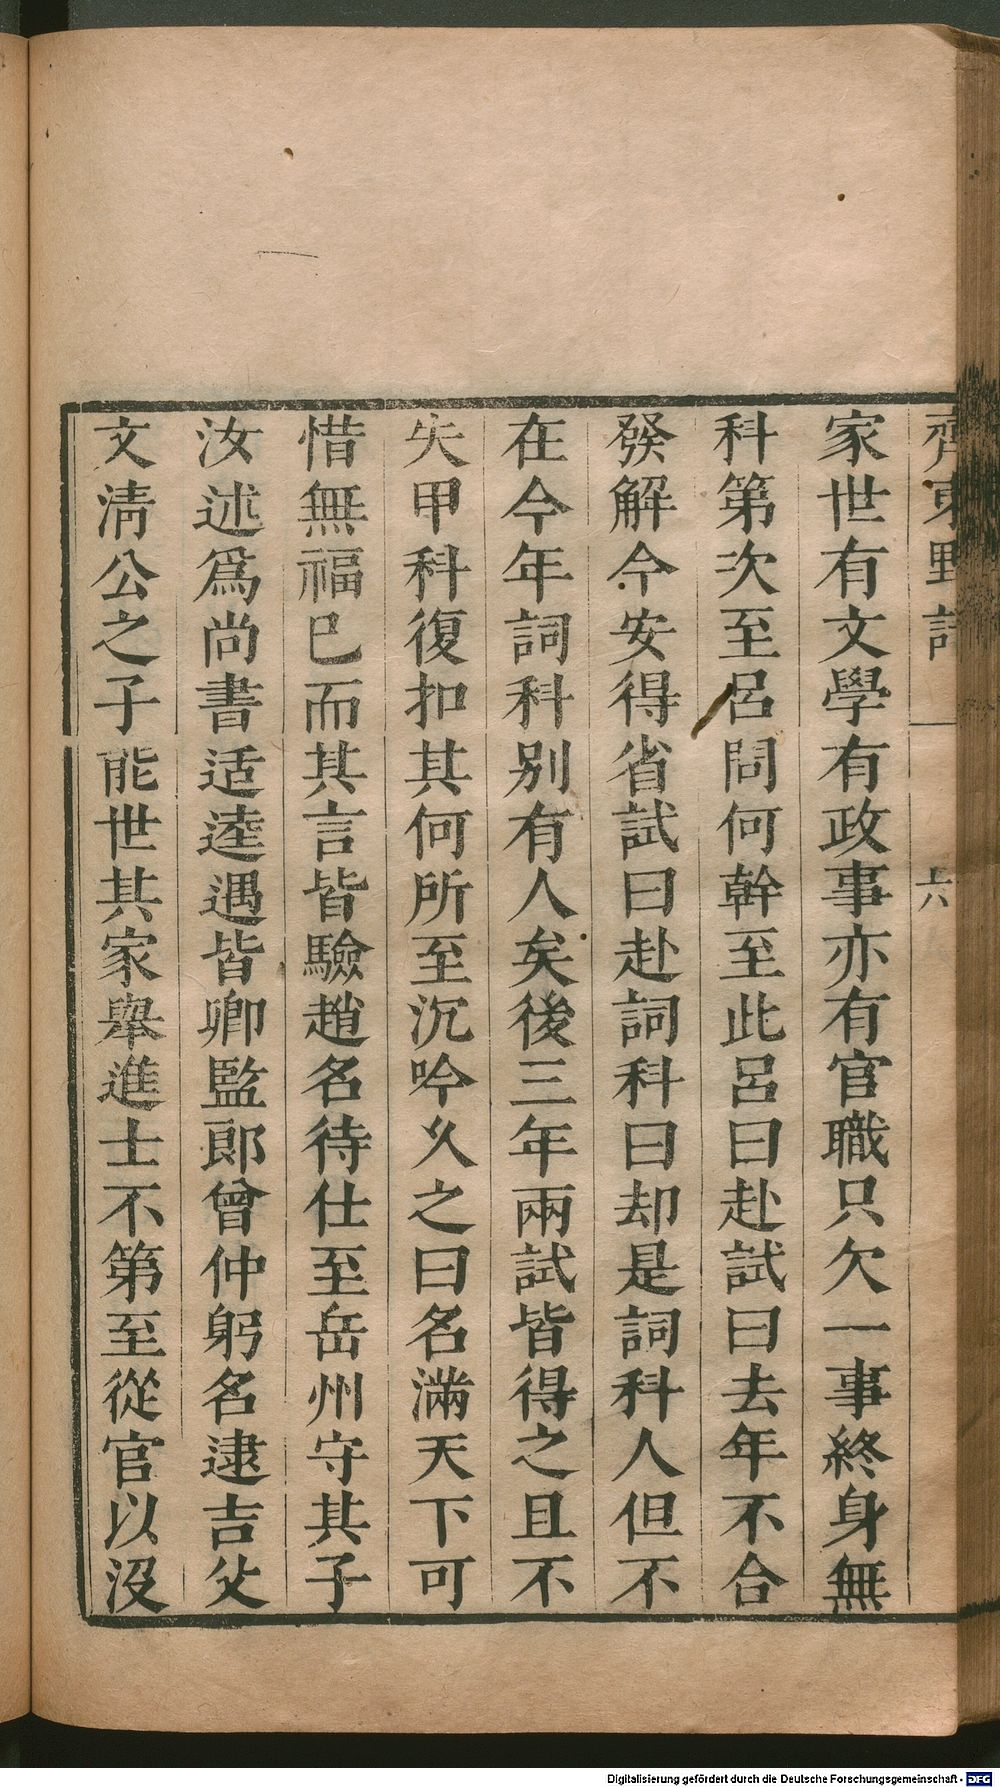 齊東野語 六
家世有文學有政事亦有官職只欠一事終身無
科第次至呂問何幹至此呂曰赴試曰去年不合
發解今安得省試曰赴詞科曰却是詞科人但不
在今年詞科别有人矣後三年兩試皆得之且不
失甲科復扣其何所至沉吟乆之曰名滿天下可
惜無福已而其言皆驗趙名待仕至岳州守其子
汝述爲尚書适逵遇皆卿監郎曾仲躬名逮吉父
文清公之子能世其家舉進士不第至從官以沒
Digitalisierung gefördert durch die Deutsche Forschungsgemeinschaft - DFG